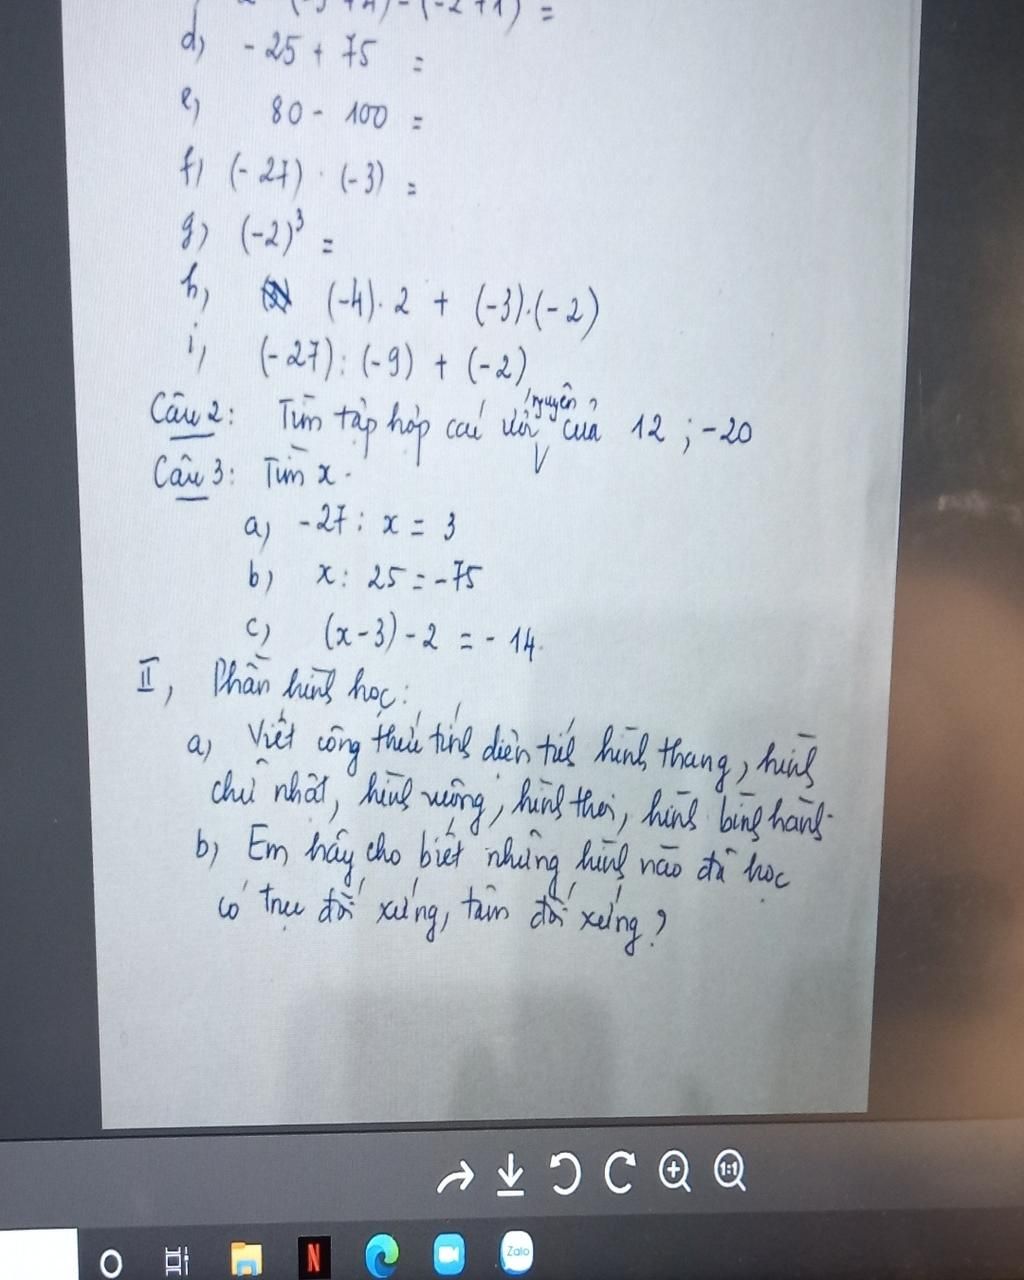 (-2+1) =
d) -25 + 75 =
e) 80 - 100 =
f) (-27) . (-3) =
g) (-2)³ =
h) (-4). 2 + (-3).(-2)
i, (-27): (-9) + (-2)
Câu 2: Tìm tập hợp các ước nguyên của 12 ; -20
Câu 3: Tìm x.
a) -27 : x = 3
b) x : 25 = -75
c) (x-3) - 2 = -14.
II, Phần hình học:
a) Viết công thức tính diện tích hình thang, hình
chữ nhật, hình vuông, hình thoi, hình bình hành.
b) Em hãy cho biết những hình nào đã học
có trục đối xứng, tâm đối xứng?
1:1
N
Zalo